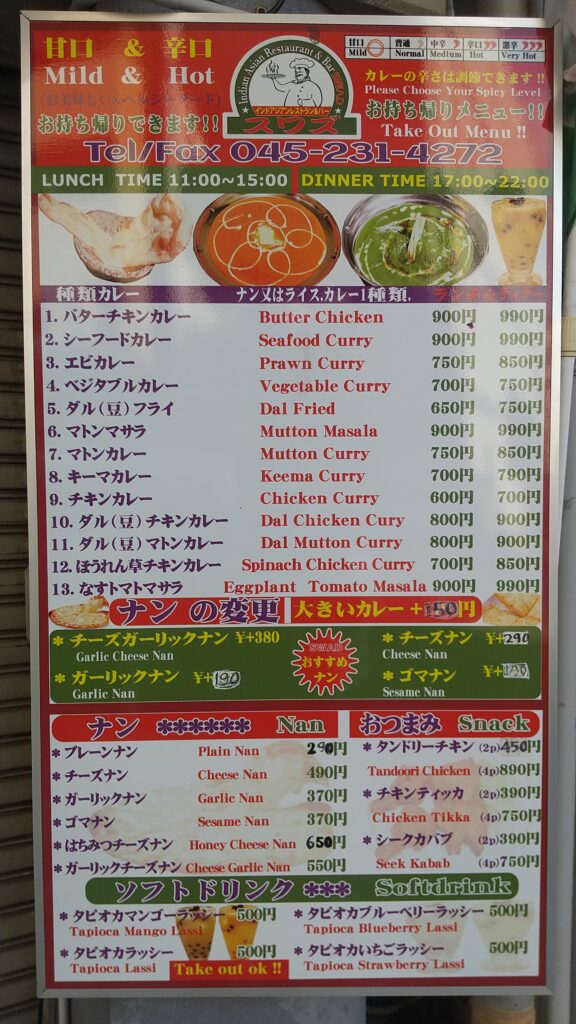 甘口 & 辛口
Mild & Hot
(お美味しい&ヘルシーフード)
お持ち帰りできます!!
Indian Asian Restaurant & Bar SWAD
インドアジアンレストラン&バー
スワズ
甘口 普通 中辛 辛口 激辛
Mild Normal Medium Hot Very Hot
カレーの辛さは調節できます !!
Please Choose Your Spicy Level
お持ち帰りメニュー!!
Take Out Menu !!
Tel/Fax 045-231-4272
LUNCH TIME 11:00~15:00 DINNER TIME 17:00~22:00
種類カレー ナン又はライス,カレー1種類,
1. バターチキンカレー Butter Chicken 900円 990円
2. シーフードカレー Seafood Curry 900円 990円
3. エビカレー Prawn Curry 750円 850円
4. ベジタブルカレー Vegetable Curry 700円 750円
5. ダル(豆)フライ Dal Fried 650円 750円
6. マトンマサラ Mutton Masala 900円 990円
7. マトンカレー Mutton Curry 750円 850円
8. キーマカレー Keema Curry 700円 790円
9. チキンカレー Chicken Curry 600円 700円
10. ダル(豆)チキンカレー Dal Chicken Cury 800円 900円
11. ダル(豆)マトンカレー Dal Mutton Curry 800円 900円
12. ほうれん草チキンカレー Spinach Chicken Curry 700円 850円
13. なすトマトマサラ Eggplant Tomato Masala 900円 990円
ナン の変更 大きいカレー +150円
* チーズガーリックナン ¥+380
Garlic Cheese Nan
* ガーリックナン ¥+190
Garlic Nan
SWAD
おすすめ
ナン
* チーズナン ¥+290
Cheese Nan
* ゴマナン ¥+
Sesame Nan
ナン ****** Nan
* プレーンナン Plain Nan 290円
* チーズナン Cheese Nan 490円
* ガーリックナン Garlic Nan 370円
* ゴマナン Sesame Nan 370円
* はちみつチーズナン Honey Cheese Nan 650円
* ガーリックチーズナン Cheese Garlic Nan 550円
おつまみ Snack
* タンドリーチキン (2p)450円
Tandoori Chicken (4p)890円
* チキンティッカ (2p)390円
Chicken Tikka (4p)750円
* シークカバブ (2p)390円
Seek Kabab (4p)750円
ソフトドリンク *** Softdrink
* タピオカマンゴーラッシー 500円
Tapioca Mango Lassi
* タピオカブルーベリーラッシー 500円
Tapioca Blueberry Lassi
* タピオカラッシー 500円
Tapioca Lassi
* タピオカいちごラッシー 500円
Tapioca Strawberry Lassi
Take out ok !!